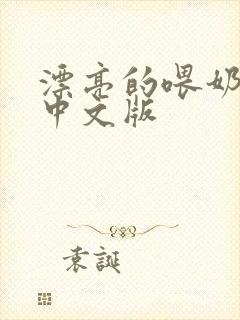 漂亮的喂奶
中文版
袁誕